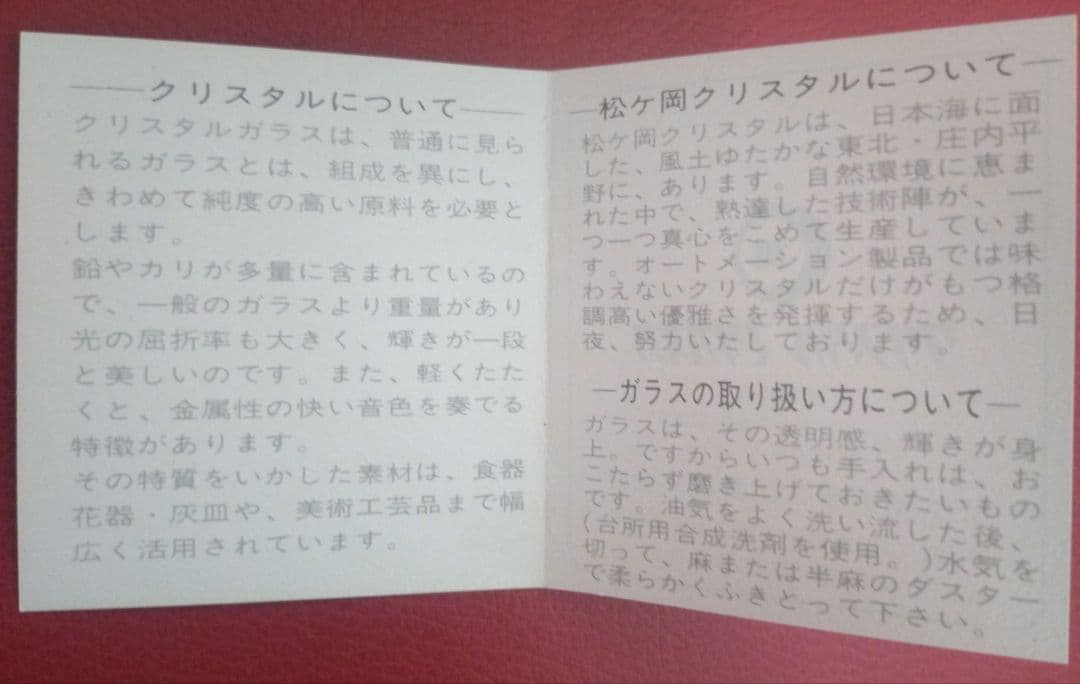 クリスタルについて
クリスタルガラスは、普通に見ら
れるガラスとは、組成を異にし、
きわめて純度の高い原料を必要と
します。
鉛やカリが多量に含まれているの
で、一般のガラスより重量があり
光の屈折率も大きく、輝きが一段
と美しいのです。また、軽くたた
くと、金属性の快い音色を奏でる
特徴があります。
その特質をいかした素材は、食器
花器・灰皿や、美術工芸品まで幅
広く活用されています。
松ケ岡クリスタルについて
松ケ岡クリスタルは、日本海に面
した、風土ゆたかな東北・庄内平
野に、あります。自然環境に恵ま
れた中で、熟達した技術陣が、一
つ一つ真心をこめて生産していま
す。オートメーション製品では味
わえないクリスタルだけがもつ格
調高い優雅さを発揮するため、日
夜、努力いたしております。
ガラスの取り扱い方について
ガラスは、その透明感、輝きが身
上。ですからいつも手入れは、お
こたらず磨き上げておきたいもの
です。油気をよく洗い流した後、
(台所用合成洗剤を使用。)水気を
切って、麻または半麻のダスター
で柔らかくふきとって下さい。